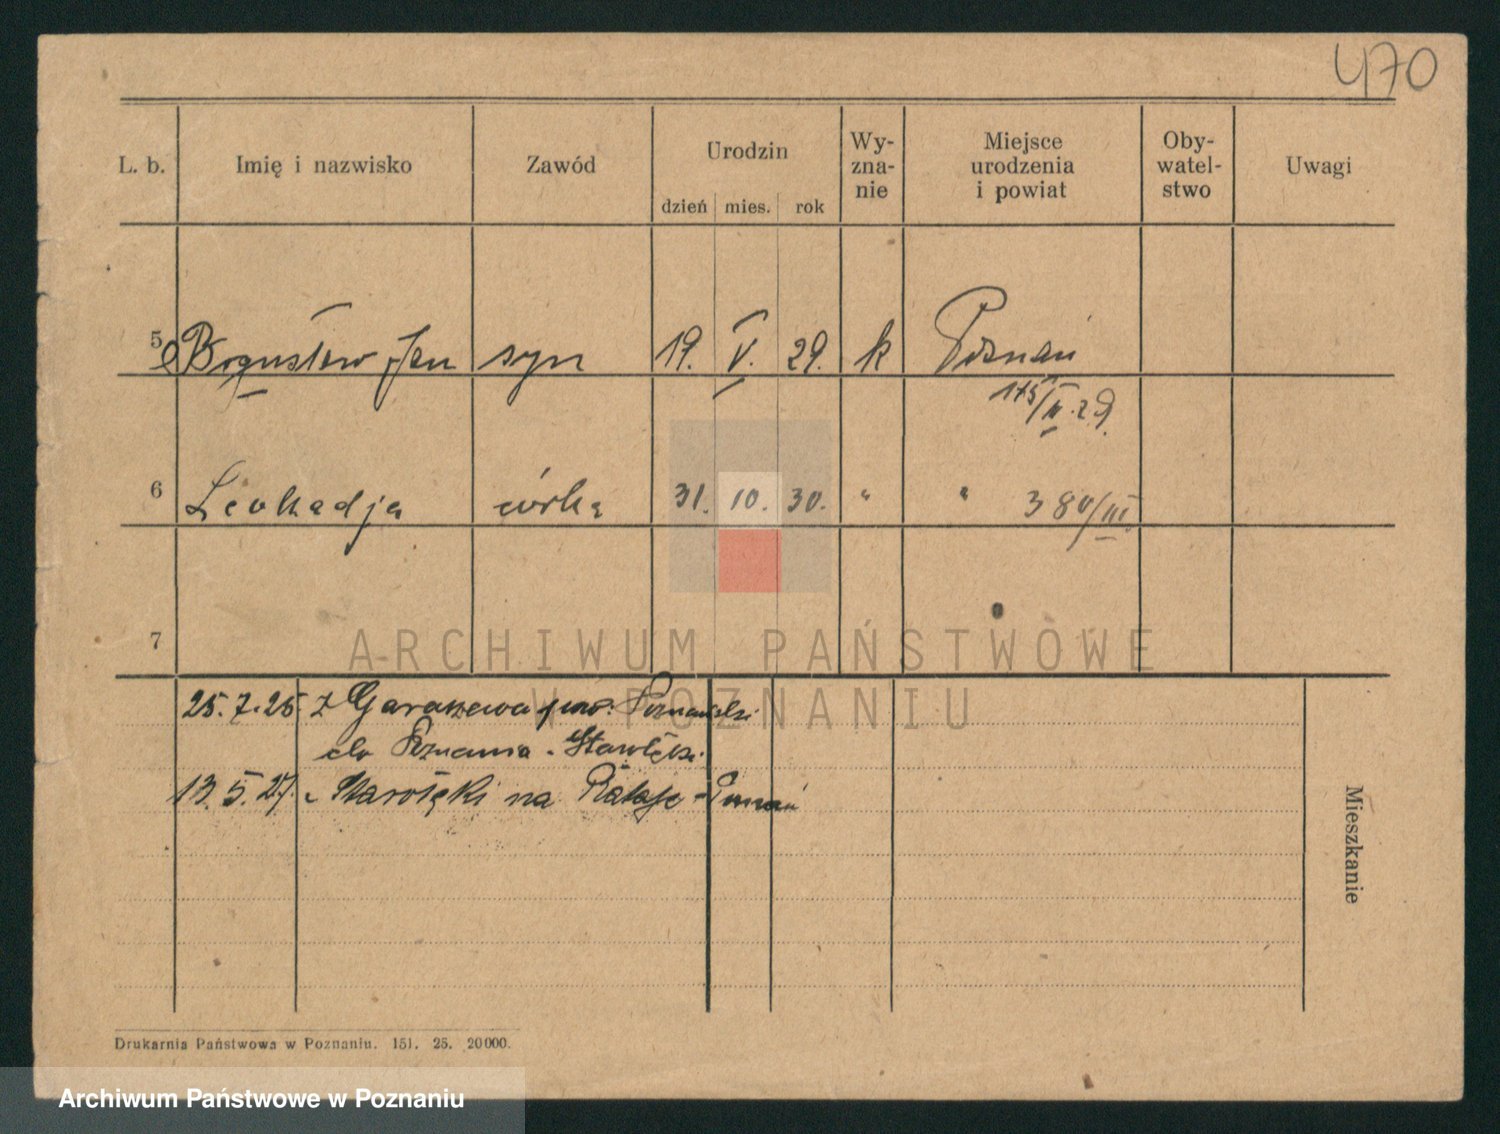 470
L. b. Imię i nazwisko Zawód Urodzin Wy-zna-nie Miejsce urodzenia i powiat Oby-watel-stwo Uwagi
dzień mies. rok
5 Bogusław Jan syn 19. V. 29. k Poznań
175/II. 29.
6 Leokadja córka 31. 10. 30. " " 380/III.
7
ARCHIWUM PAŃSTWOWE
W POZNANIU
25.7.25 z Garaszewa pow. Poznański
do Poznania - Starołęki
13.5.27. " Starołęki na Rataje - Poznań
Mieszkanie
Drukarnia Państwowa w Poznaniu. 151. 25. 20000.
Archiwum Państwowe w Poznaniu